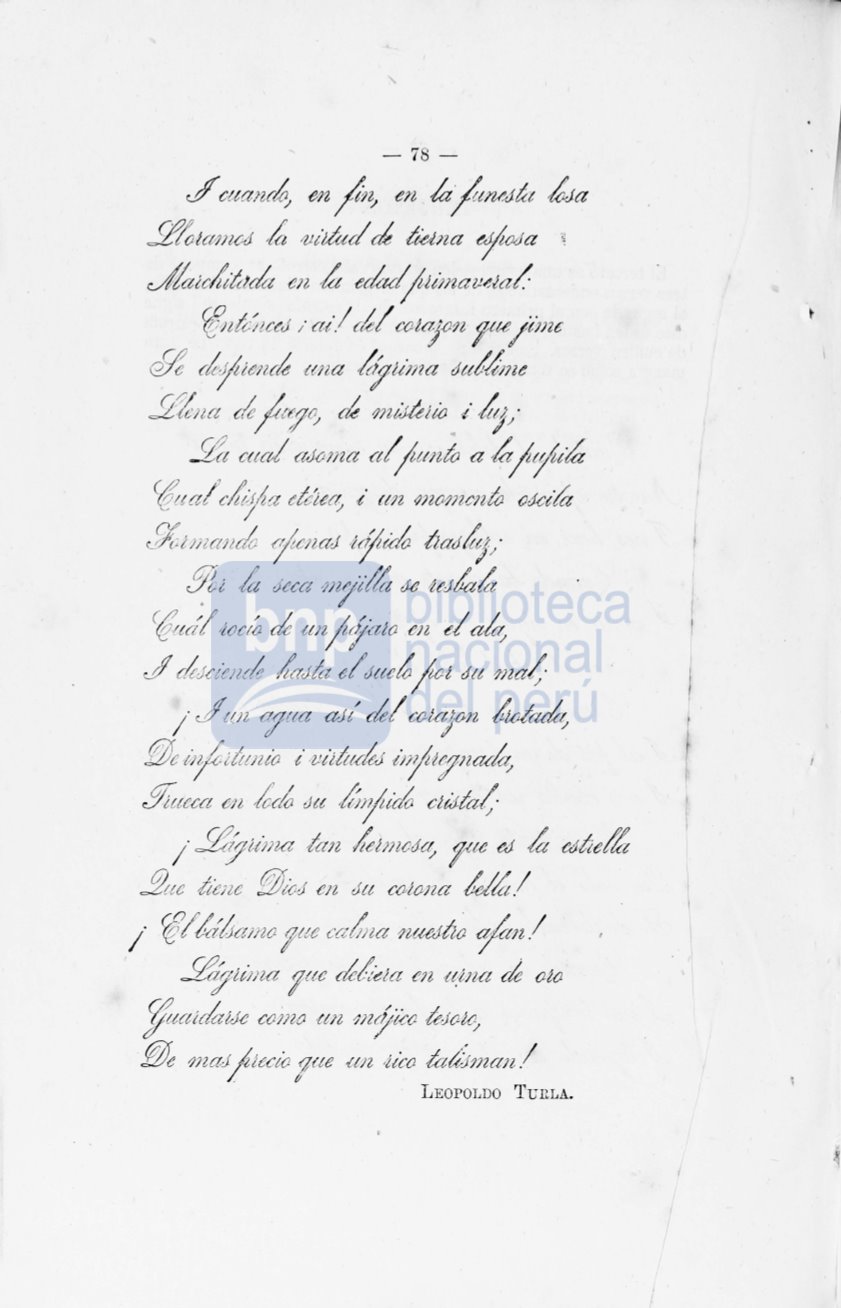 — 78 —
I cuando, en fin, en la funesta losa
Lloramos la virtud de tierna esposa
Marchitada en la edad primaveral:
Entónces ¡ai! del corazon que jime
Se desprende una lágrima sublime
Llena de fuego, de misterio i luz;
La cual asoma al punto a la pupila
Cual chispa etérea, i un momento oscila
Formando apenas rápido trasluz;
Por la seca mejilla se resbala
Cuál rocío de un pájaro en el ala,
I desciende hasta el suelo por su mal;
¡I un agua así del corazon brotada,
De infortunio i virtudes impregnada,
Trueca en lodo su límpido cristal;
¡Lágrima tan hermosa, que es la estrella
Que tiene Dios en su corona bella!
¡El bálsamo que calma nuestro afan!
Lágrima que debiera en urna de oro
Guardarse como un májico tesoro,
De mas precio que un rico talisman!
LEOPOLDO TURLA.
bnp biblioteca
nacional
del perú